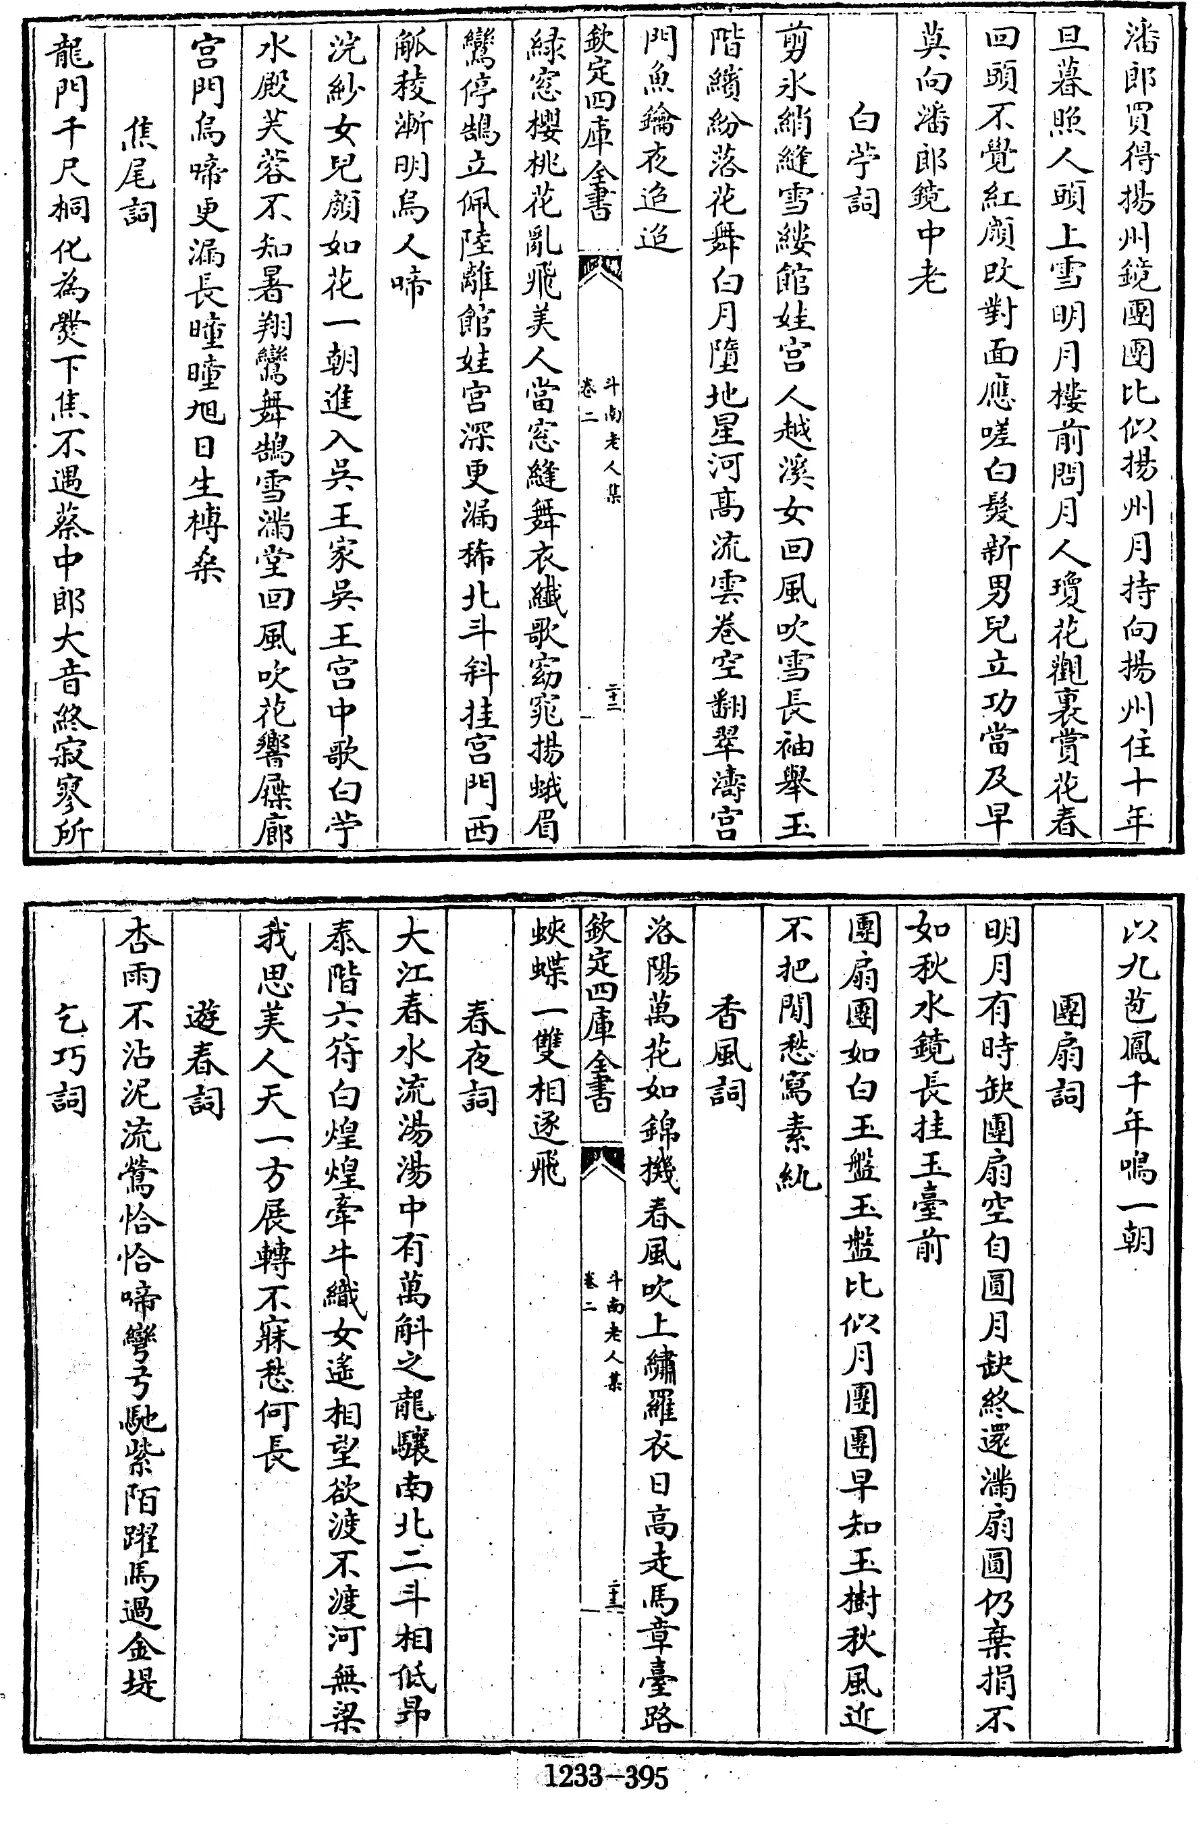 潘郎買得揚州鏡團團比似揚州月持向揚州住十年
旦暮照人頭上雪明月樓前問月人瓊花觀裏賞花春
回頭不覺紅顔改對面應嗟白髮新男兒立功當及早
莫向潘郎鏡中老
白苧詞
剪氷綃縫雪縷館娃宫人越溪女回風吹雪長袖舉玉
階繽紛落花舞白月墮地星河髙流雲卷空翻翠濤宫
門魚鑰夜迢迢
欽定四庫全書
斗南老人集
卷二
二十二
緑窓櫻桃花亂飛美人當窓縫舞衣纖歌窈窕揚蛾眉
鸞停鵠立佩陸離館娃宫深更漏稀北斗斜挂宫門西
觚稜漸明烏人啼
浣紗女兒顔如花一朝進入吳王家吳王宫中歌白苧
水殿芙蓉不知暑翔鸞舞鵠雪滿堂回風吹花響屧廊
宫門烏啼更漏長曈曈旭日生榑桑
焦尾詞
龍門千尺桐化為爨下焦不遇蔡中郎大音終寂寥所
以九苞鳳千年鳴一朝
團扇詞
明月有時缺團扇空自圓月缺終還滿扇圓仍棄捐不
如秋水鏡長挂玉臺前
團扇團如白玉盤玉盤比似月團團早知玉樹秋風近
不把閒愁寫素紈
香風詞
洛陽萬花如錦機春風吹上繡羅衣日高走馬章臺路
欽定四庫全書
斗南老人集
卷二
二十三
蛺蝶一雙相逐飛
春夜詞
大江春水流湯湯中有萬斛之龍驤南北二斗相低昂
泰階六符白煌煌牽牛織女遙相望欲渡不渡河無梁
我思美人天一方展轉不寐愁何長
遊春詞
杏雨不沾泥流鶯恰恰啼彎弓馳紫陌躍馬過金堤
乞巧詞
1233-395